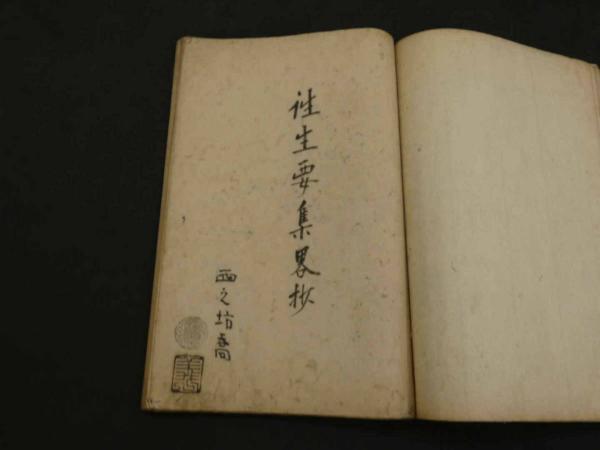 徃生要集畧抄
西之坊喬